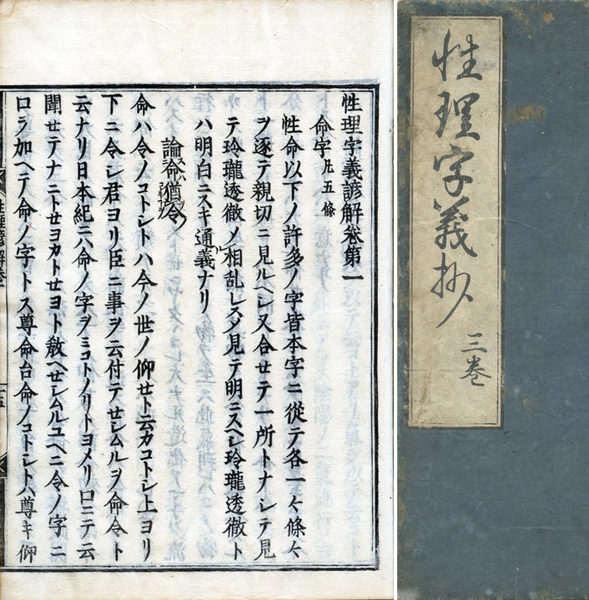 性理字義抄
三巻
性理字義諺解巻第一
命字凡五條
性命以下ノ許多ノ字皆本字ニ從テ各一々條々
ヲ逐テ親切ニ見ルヘシ又合セテ一所トナシテ見
テ玲瓏透徹ノ相乱レス見テ明ニスヘシ玲瓏透徹ト
ハ明白ニスキ通義ナリ
論命猶令
命ハ令ノコトシトハ今ノ世ノ仰セト云カコトシ上ヨリ
下ニ令シ君ヨリ臣ニ事ヲ云付テせシムルヲ命令ト
云ナリ日本紀ニハ命ノ字ヲミコトノリトヨメリ口ニテ云
聞せテナニトせヨカトせヨト敎ヘせシムルユヘニ令ノ字ニ
口ヲ加ヘテ命ノ字トス尊命台命ノコトシトハ尊キ仰